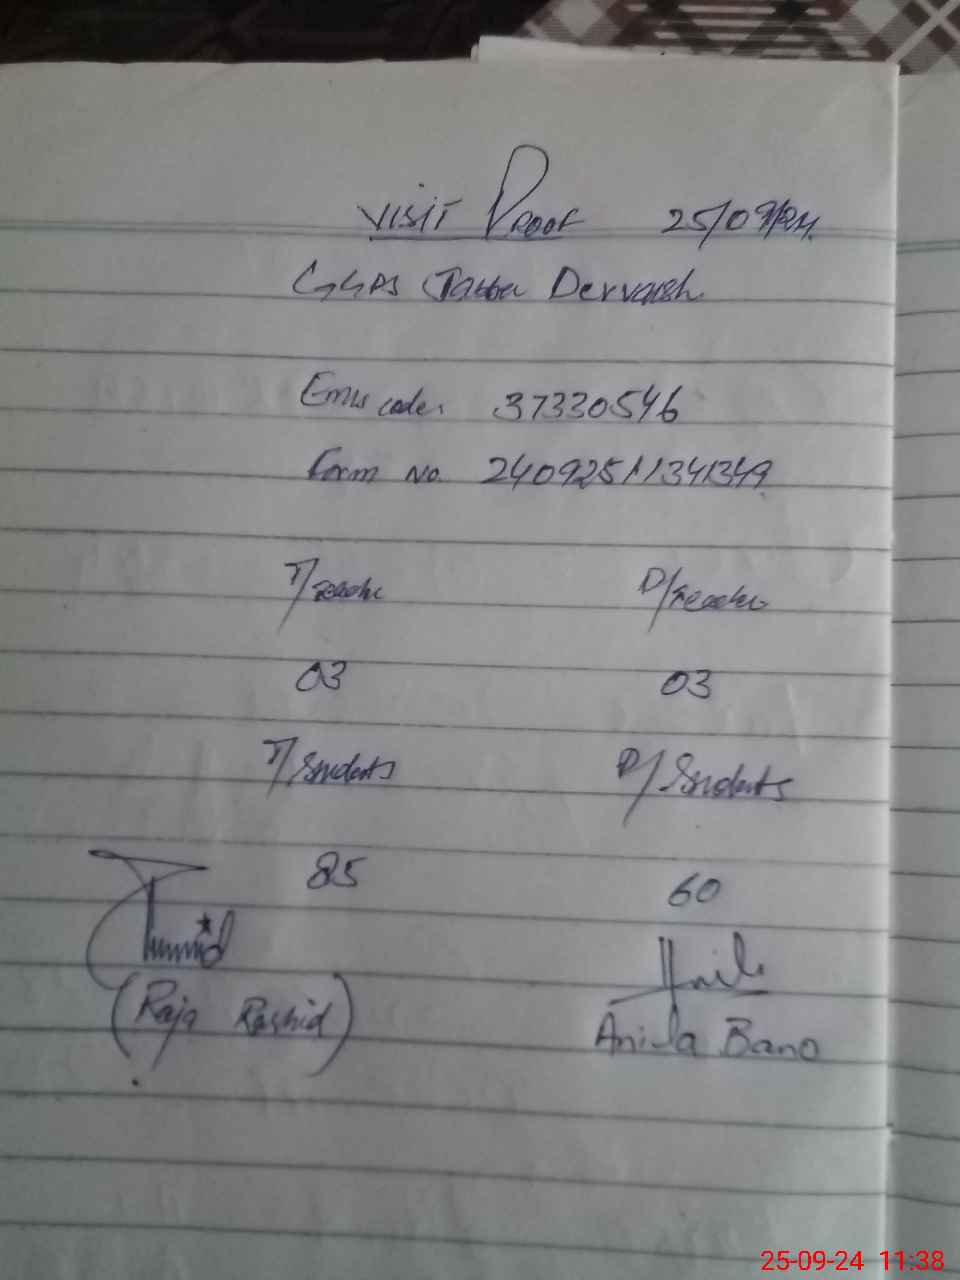 VISIT PROOF 25/09/24.
GGPS Tabba Dervaish
Emis code. 37330546
Form No. 24092511341349
T/Teache P/Teacher
03 03
T/Students P/Students
85 60
(Raja Rashid) Anila Bano
25-09-24 11:38